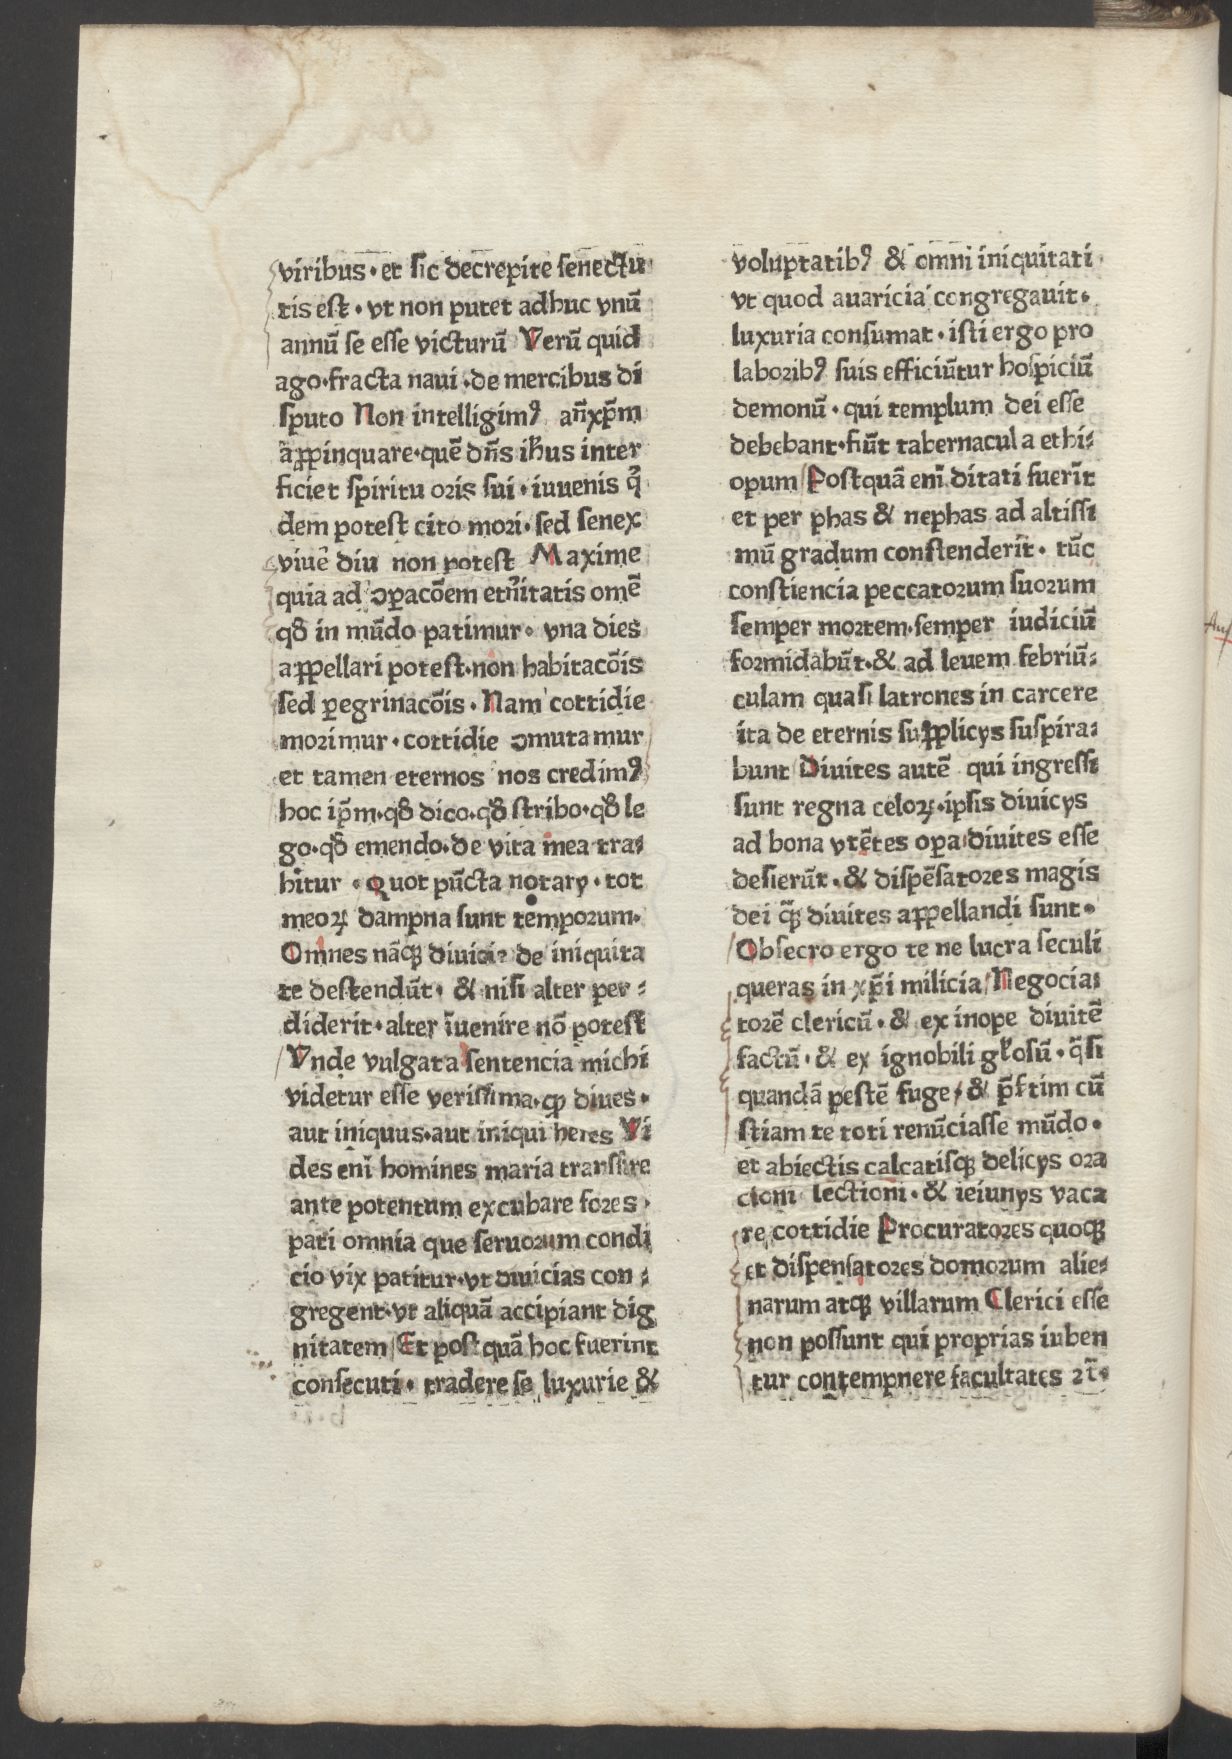 viribus· et sic decrepite senectu
tis est · vt non putet adhuc vnū
annū se esse victurū Verū quid
ago·fracta naui ·de mercibus di
sputo Non intelligimꝰ an̄xp̄m
ap̄p̄inquare·quē dn̄s ih̄us inter
ficiet spiritu oris sui · iuuenis q̇
dem potest cito mori· sed senex
viuē diu non potest Maxime
quia ad ꝯꝑacōem et̄nitatis omē
qđ in mūdo patimur· vna dies
appellari potest·non habitacōis
sed peregrinacōis · Nam cottidie
morimur · cottidie ꝯmutamur
et tamen eternos nos credimꝰ
hoc ip̄m·qđ dico·qđ stribo·qđ le
go·qđ emendo·de vita mea tra⸗
hitur · Quot pūcta notary · tot
meoꝝ dampna sunt temporum·
Omnes nāqꝫ diuicie de iniquita
te destendūt· & nisi alter per⸗
diderit·alter īuenire nō potest
Vnde vulgata sentencia michi
videtur esse verissima·ꝙ diues·
aut iniquus·aut iniqui heres Vi
des enī homines maria transsire
ante potentum excubare fores ·
pati omnia que seruorum condi
cio vix patitur·vt diuicias con⸗
gregent·vt aliquā accipiant dig
nitatem Et postquā hoc fuerint
consecuti· tradere se luxurie &
voluptatibꝰ & omni iniquitati
vt quod auaricia congregauit·
luxuria consumat · isti ergo pro
laboribꝰ suis efficiūtur hospiciū
demonū · qui templum dei esse
debebant·fiūt tabernacula ethi⸗
opum Postquā enī ditati fuerīt
et per phas & nephas ad altissi
mū gradum constenderīt · tūc
constiencia peccatorum suorum
semper mortem·semper iudiciū
formidabūt·& ad leuem febriū⸗
culam quasi latrones in carcere
ita de eternis supplicys suspira⸗
bunt Diuites autē qui ingressi
sunt regna celoꝝ·ipsis diuicys
ad bona vtētes opera diuites esse
desierūt · & dispēsatores magis
dei q̄ꝫ diuites appellandi sunt·
Obsecro ergo te ne lucra seculi
queras in xp̄i milicia Negocia⸗
torē clericū · & ex inope diuitē
factū · & ex ignobili gl̄osū · q̄si
quandā pestē fuge / & p̄sertim cū
stiam te toti renūciasse mūdo ·
et abiectis calcatisqꝫ delicys ora
cioni lectioni · & ieiunys vaca
re cottidie Procuratores quoqꝫ
et dispensatores domorum alie⸗
narum atqꝫ villarum Clerici esse
non possunt qui proprias iuben
tur contempnere facultates ⁊t̄·